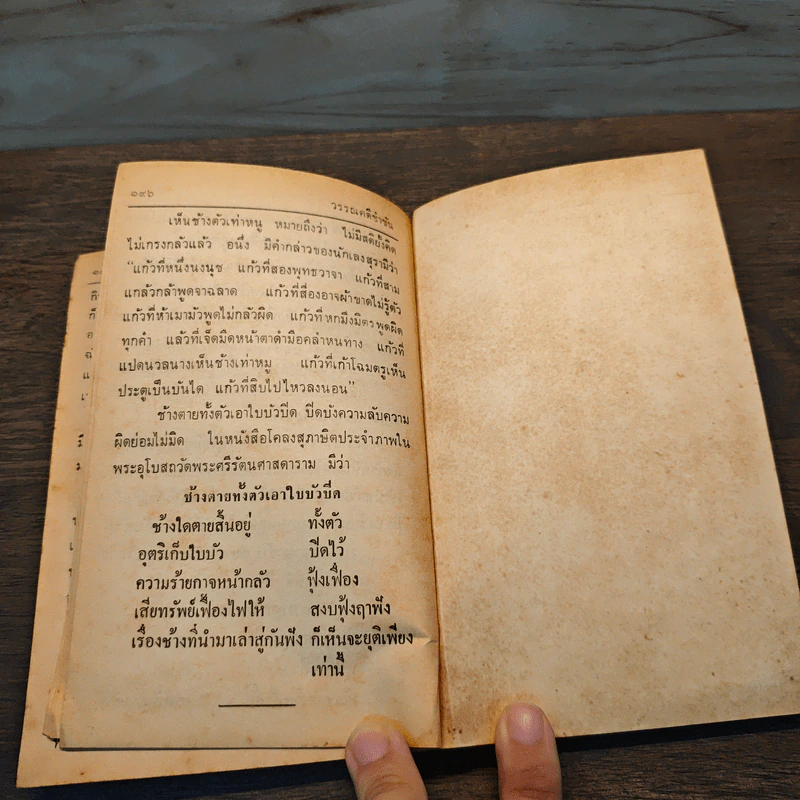 ๑๙๖
วรรณคดีขำขัน
เห็นช้างตัวเท่าหนู หมายถึงว่า ไม่มีสติยั้งคิด
ไม่เกรงกลัวแล้ว อนึ่ง มีคำกล่าวของนักเลงสุรามีว่า
“แก้วที่หนึ่งนงนุช แก้วที่สองพุทธวาจา แก้วที่สาม
แกล้วกล้าพูดจาฉลาด แก้วที่สี่องอาจผ้าขาดไม่รู้ตัว
แก้วที่ห้าเมามัวพูดไม่กลัวผิด แก้วที่หกมึงมิตรพูดผิด
ทุกคำ แล้วที่เจ็ดมืดหน้าตาดำมือคลำหนทาง แก้วที่
แปดนวลนางเห็นช้างเท่าหมู แก้วที่เก้าโฉมตรูเห็น
ประตูเป็นบันได แก้วที่สิบไปไหวลงนอน”
ช้างตายทั้งตัวเอาใบบัวปิด ปิดบังความลับความ
ผิดย่อมไม่มิด ในหนังสือโคลงสุภาษิตประจำภาพใน
พระอุโบสถวัดพระศรีรัตนศาสดาราม มีว่า
ช้างตายทั้งตัวเอาใบบัวปิด
ช้างใดตายสิ้นอยู่ ทั้งตัว
อุตริเก็บใบบัว ปิดไว้
ความร้ายกาจหน้ากลัว ฟุ้งเฟื่อง
เสียทรัพย์เฟื้องไฟให้ สงบฟุ้งฤาฟัง
เรื่องช้างที่นำมาเล่าสู่กันฟัง ก็เห็นจะยุติเพียง
เท่านี้